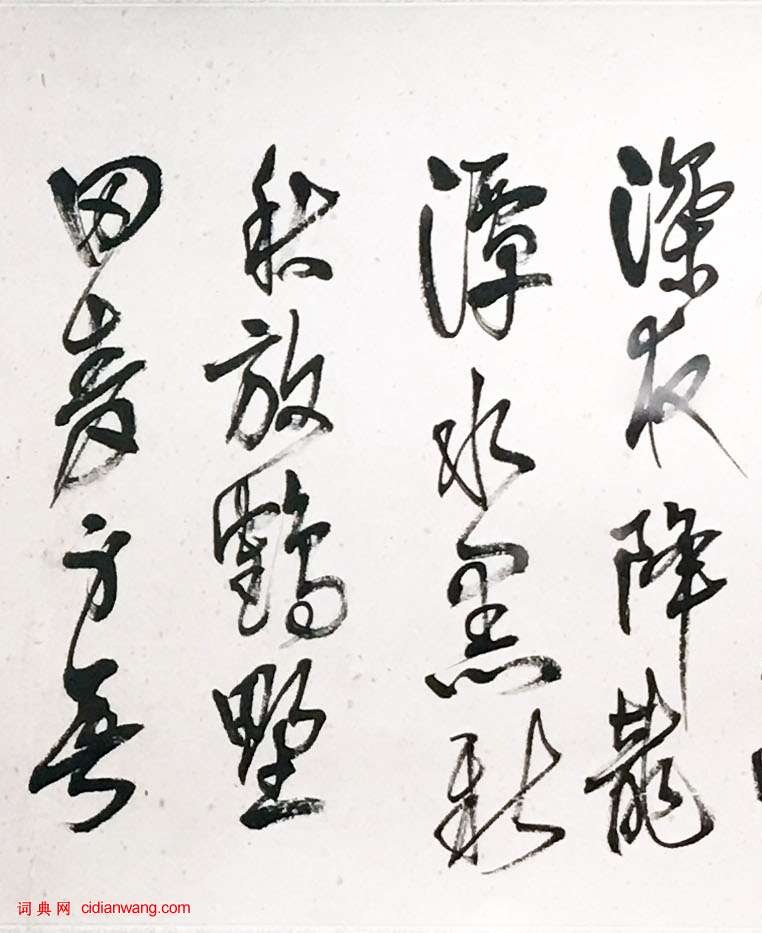 深夜降龍
潭水黑新
秋放鶴野
田青
词典网 cidianwang.com